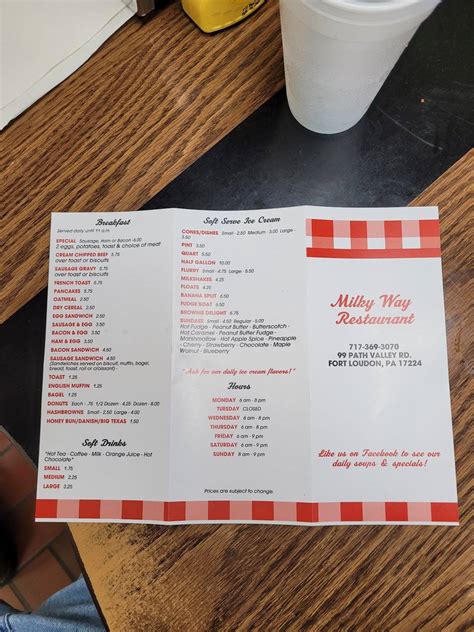 Breakfast
Served daily until 11 a.m.
SPECIAL Sausage, Ham or Bacon 6.00
2 eggs, potatoes, toast & choice of meat
CREAM CHIPPED BEEF 5.75
over toast or biscuits
SAUSAGE GRAVY 5.75
over toast or biscuits
FRENCH TOAST
PANCAKES
OATMEAL
DRY CEREAL
EGG SANDWICH
SAUSAGE & EGG
BACON & EGG
HAM & EGG
BACON SANDWICH
SAUSAGE SANDWICH
(Sandwiches served on biscuit, muffin, bagel,
bread, toast, roll or croissant)
TOAST
ENGLISH MUFFIN
BAGEL
DONUTS Each
HASHBROWNS Small - 2.50 Large - 4.00
HONEY BUN/DANISH/BIG TEXAS 1.50
Soft Drinks
*Hot Tea - Coffee - Milk - Orange Juice - Hot
Chocolate*
SMALL 1.75
MEDIUM
LARGE
Soft Serve Ice Cream
CONES/DISHES Small - 2.50 Medium - 3.00 Large -
PINT
QUART
HALF GALLON
FLURRY Small Large
MILKSHAKES
FLOATS
BANANA SPLIT
FUDGE BOAT
BROWNIE DELIGHT
SUNDAES Small Regular
Hot Fudge - Peanut Butter - Butterscotch -
Hot Caramel - Peanut Butter Fudge -
Marshmallow - Hot Apple Spice - Pineapple
- Cherry - Strawberry - Chocolate - Maple
Walnut - Blueberry
"Ask for our daily ice cream flavors!"
Hours
MONDAY 6 am - 8 pm
TUESDAY CLOSED
WEDNESDAY 6 am - 8 pm
THURSDAY 6 am - 8 pm
FRIDAY 6 am - 9 pm
SATURDAY 6 am - 9 pm
SUNDAY 8 am - 9 pm
Prices are subject to change.
Milky Way
Restaurant
717-369-3070
99 PATH VALLEY RD.
FORT LOUDON, PA 17224
Like us on Facebook to see our
daily soups & specials!